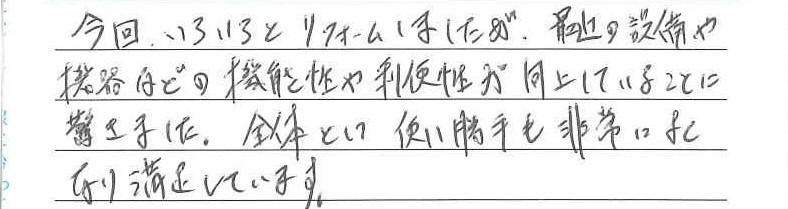 今回、いろいろとリフォームしましたが、最近の設備や
機器などの機能性や利便性が向上していることに
驚きました。全体とし 使い勝手も非常によく
なり満足しています。